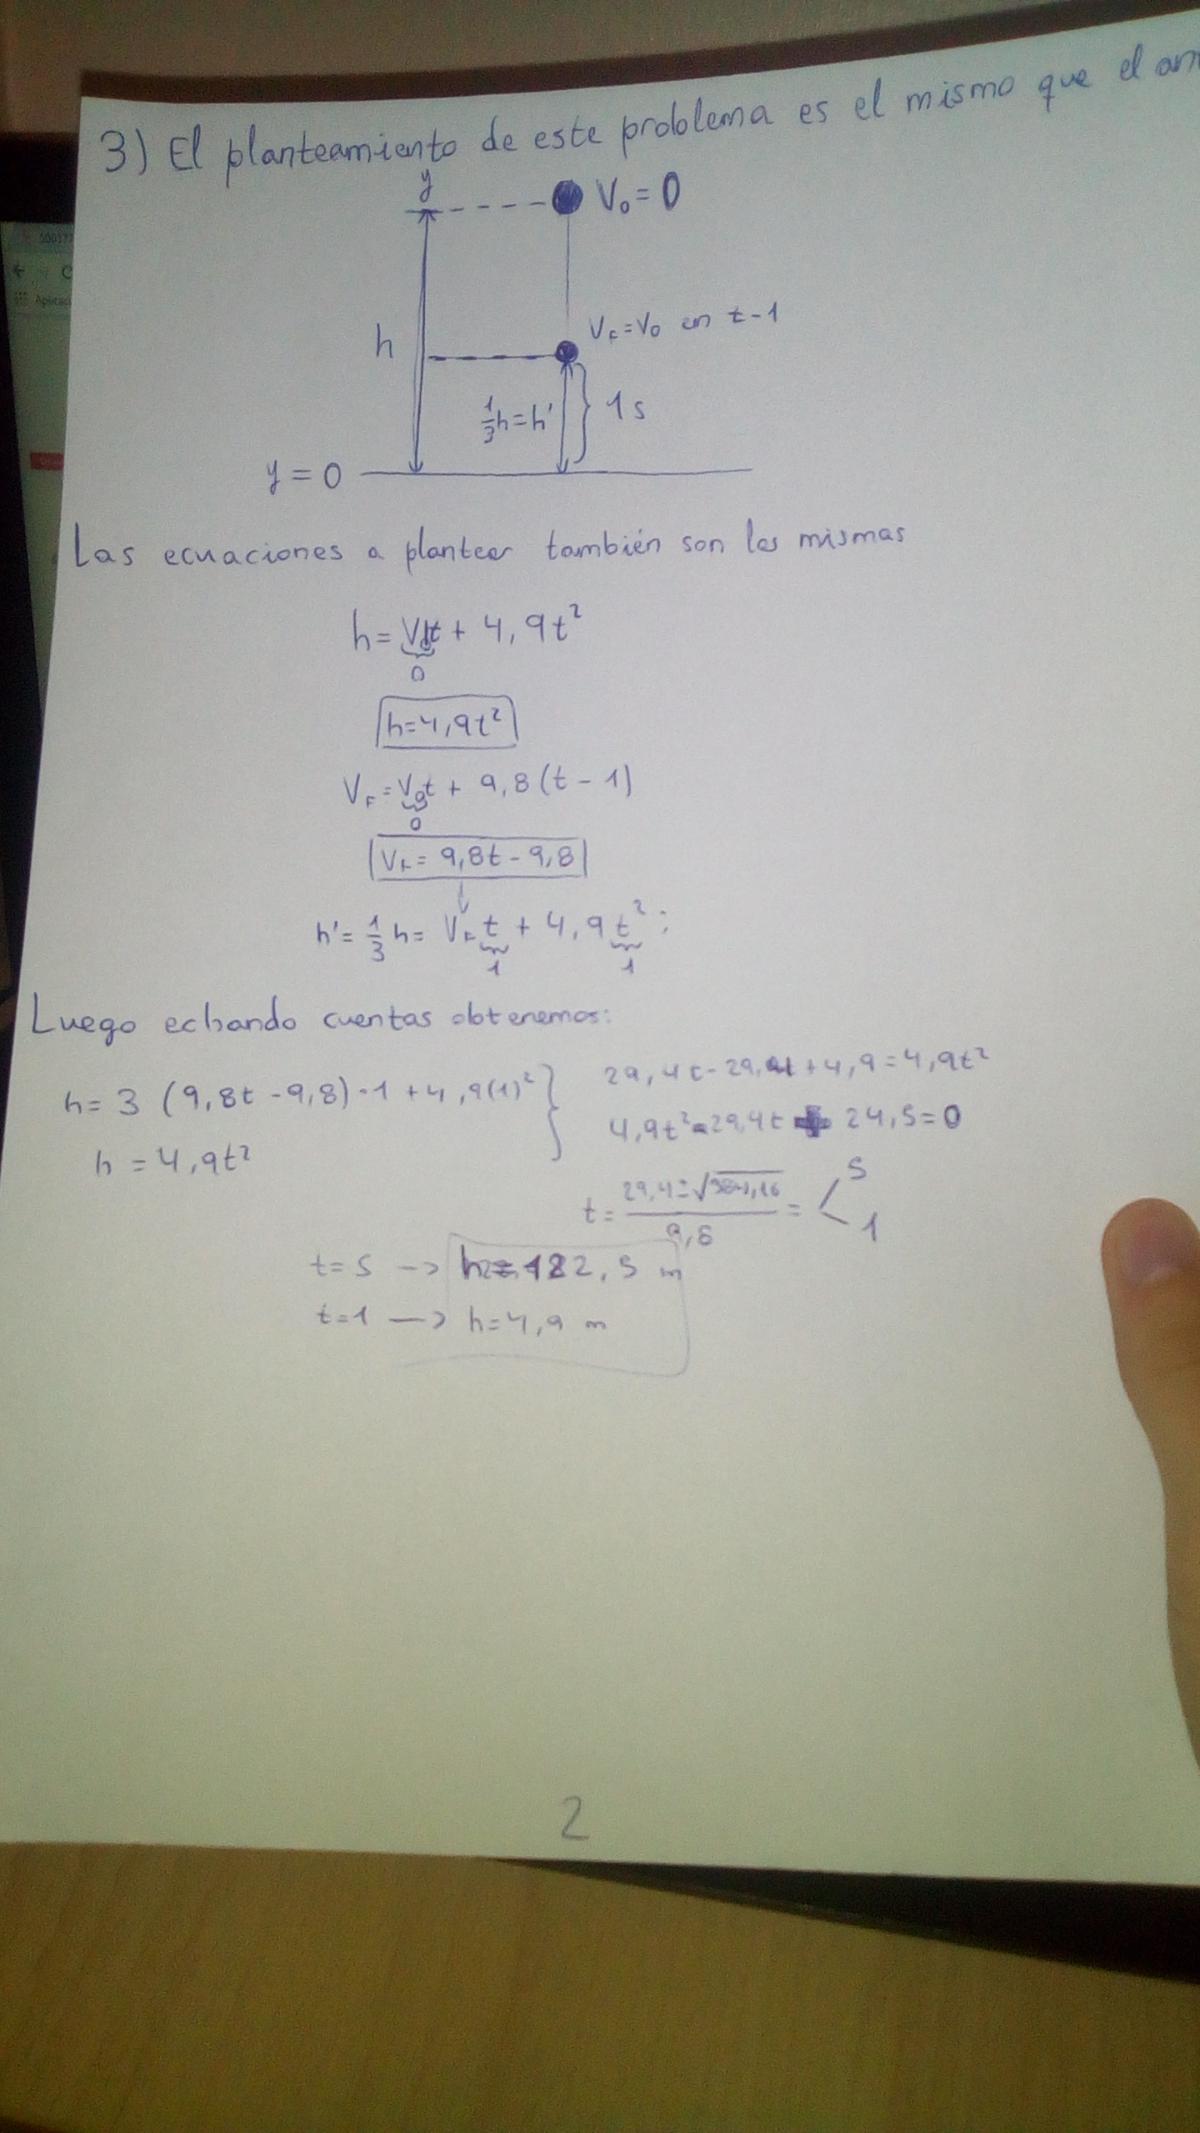 3) El planteamiento de este problema es el mismo que el an
y
V₀ = 0
h
V_F = V₀ en t-1
1/3 h = h'
1 s
y = 0
Las ecuaciones a plantear también son las mismas
h = V₀t + 4,9t²
0
h = 4,9t²
V_F = V₀t + 9,8(t - 1)
0
V_F = 9,8t - 9,8
h' = 1/3 h = V_F t + 4,9 t² ;
1 1
Luego echando cuentas obtenemos:
h = 3 (9,8t - 9,8)·1 + 4,9(1)² }
h = 4,9t²
29,4t - 29,4 + 4,9 = 4,9t²
4,9t² - 29,4t + 24,5 = 0
t = 29,4 ± √384,16 / 9,8 = < 5
1
t = 5 -> h = 122,5 m
t = 1 -> h = 4,9 m
2